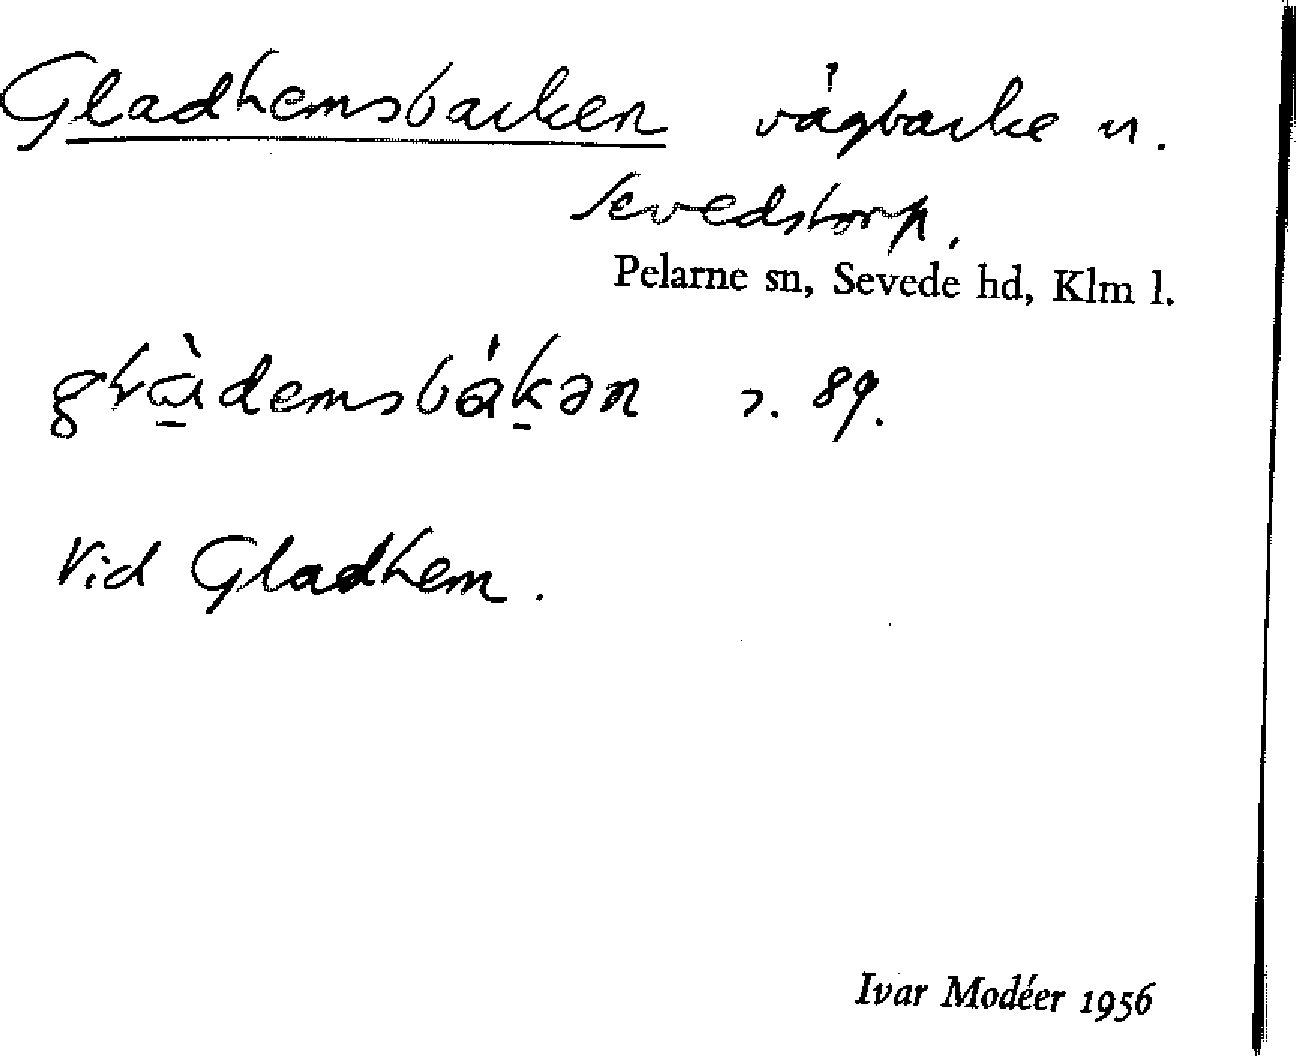 Gladhemsbacken vägbacke u.
Sevedstorp.
Pelarne sn, Sevede hd, Klm l.
s. 89.
Vid Gladhem.
Ivar Modéer 1956